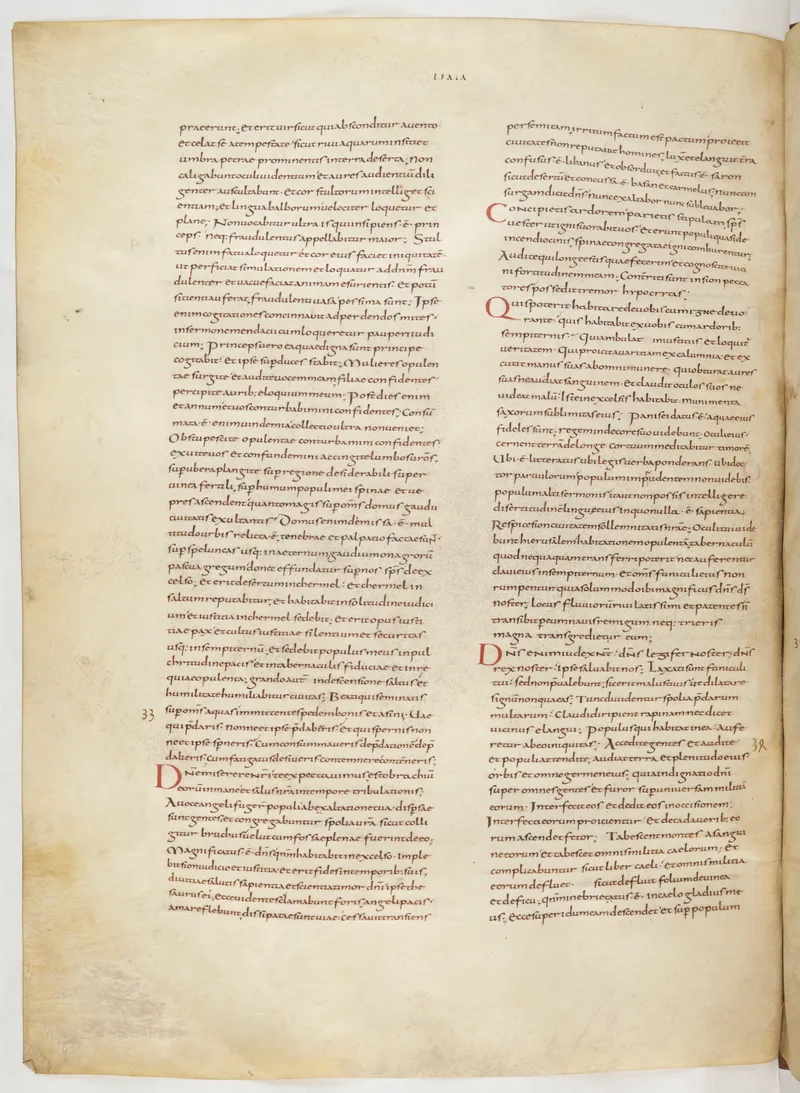 ISAIA
praeerunt; et erit uir sicut qui absconditur auento
et celat se a tempestate sicut riui aquarum insitiet
umbra petrae prominentis interra deserta; non
caligabunt oculi uidentium et aures audientiū dili
genter auscultabunt; et cor stultorum intelleget sci
entiam; et lingua balborum uelociter loquetur et
plane; Non uocabitur ultra is qui insipiens ē prin
ceps; neq; fraudulentus appellabitur maior; Stul
tus enim fatua loquetur et cor eius faciet iniquitatē
ut perficiat simulationem et loquatur addnm frau
dulenter et uacuefaciat animam esurientis; et potū
sitienti auferat; fraudulenti uasa pessima sunt; Ipse
enim cogitationes concinnauit ad perdendos mites
insermone mendacii cum loqueretur pauper iudi
cium; Princeps uero ea quae digna sunt principe
cogitabit; et ipse sup duces stabit; Mulieres opulen
tae surgite et audite uocem meam filiae confidentes
percipite aurib; eloquium meum; Post dies enim
et annum et uos conturbabimini confidentes; Consū
mata ē enim uindemia collectio ultra non ueniet;
Obstupescite opulentae conturbamini confidentes
exuite uos et confundemini accingite lumbos uros;
sup ubera plangite sup regione desiderabili super
uinea fertili, sup humum populi mei spinae et ue
pres ascendent quanto magis sup oms domus gaudii
ciuitatis exultantis; Domus enim dimissa ē mul
titudo urbis relicta ē; tenebrae et palpatio factae sunt
sup speluncas usq; inaeternum gaudium onagrorū
pascua gregum donec effundatur sup nos sps de ex
celso; et erit desertum inchermel; et chermel in
saltum reputabitur; et habitabit insolitudine iudici
um et iustitia inchermel sedebit; et erit opus iusti
tiae pax et cultus iustitiae silentium et securitas
usq; insempiternū; et sedebit populus meus inpul
chritudine pacis et intabernaculis fiduciae et inre
quie opulenta; grando autē indescensione saltus et
humilitate humiliabitur ciuitas; Beati qui seminatis
33
sup oms aquas inmittentes pedem bouis et asini; Uae
qui pdaris nonne et ipse pdaberis; et qui spernis non
ne et ipse sperneris; Cum consummaueris depdationē dep
daberis; cum fatigatus desieris contemnere contemneris;
Dne miserere nri te expectauimus esto brachiū
eorū inmane et salus nra intempore tribulationis
A uoce angeli fugerunt populi ab exaltatione tua dispsae
sunt gentes et congregabuntur spolia ura sicut colli
gitur bruchus uelut cum fossae plenae fuerint deeo;
Magnificatus ē dns qnm habitabit inexcelso; Imple
bit sion iudicio et iustitia et erit fides intemporib; suis;
diuitiae salutis sapientia et scientia timor dni ipse the
saurus eius; ecce uidentes clamabunt foris angeli pacis
amare flebunt; dissipatae sunt uiae; cessauit transiens
per semitam; irritum factum est pactum proiecit
ciuitates non reputauit homines; luxit et elanguit terra
confusus ē libanus et obsorduit; et factus ē saron
sicut desertū et concussa ē basan et carmelus; nunc con
surgam dicit dns; nunc exaltabor nunc subleuabor;
Concipietis ardorem parietis stipulam; sps
uester ut ignis uorabit uos; et erunt populi quasi de
incendio cinis spinae congregatae igni comburentur;
Audite qui longe estis quae fecerim et cognoscite uici
ni fortitudinem meam; Conterriti sunt insion pecca
tores possedit tremor hypocritas;
Quis poterit habitare deuobis cum igne deuo
rante quis habitabit exuobis cum ardorib;
sempiternis; Qui ambulat iniustitiis et loquit
ueritatem; Qui proicit auaritiam excalumnia et ex
cutit manus suas abomni munere; qui obturat aures
suas ne audiat sanguinem; et claudit oculos suos ne
uideat malū; Iste inexcelsis habitabit; munimenta
saxorum sublimitas eius; Panis ei datus ē aquae eius
fideles sunt; regem indecore suo uidebunt; oculi eius
cernent terrā delonge cor tuum meditabitur timorē;
Ubi ē litteratus ubi legis uerba ponderans ubi doc
tor paruulorum populum impudentem non uidebis
populum alti sermonis ita ut non possis intelligere
disertitudinē linguae eius inquo nulla ē sapientia;
Respice sion ciuitatem sollemnitatis nrae; Oculi tui uide
bunt hierusalem habitationem opulentā; tabernaculū
quod nequaquam transferri poterit nec auferentur
claui eius insempiternum; et oms funiculi eius non
rumpentur quia solummodo ibi magnificus dns ds
noster; locus fluuiorū riui latissimi et patentes n̄
transibit p eum nauis remigum neq; trieris
magna transgredietur eum;
Dns enim iudex nr dns legifer noster; dns
rex noster ipse saluabit nos; Laxati sunt funiculi
tui sed non pualebunt; sic erit malus tuus ut dilatare
signū non queas; Tunc diuidentur spolia pdarum
multarum; Claudi diripient rapinam nec dicet
uicinus elangui; Populus qui habitat in ea; Aufe
retur abeo iniquitas; Accedite gentes et audite
34
et populi attendite; audiat terra et plenitudo eius
orbis et omne germen eius; quia indignatio dni
super omnes gentes et furor sup uniuersam militiā
eorum; Interfecit eos et dedit eos inoccisionem;
Interfecti eorum proicientur et decadauerib; eo
rum ascendet fetor; Tabescent montes a sangui
ne eorum et tabescet omnis militia caelorum; et
complicabuntur sicut liber caeli; et omnis militia
eorum defluet sicut defluit folium de uinea
et deficu, qnm inebriatus ē incaelo gladius me
us; ecce super idumeam descendet et sup populum